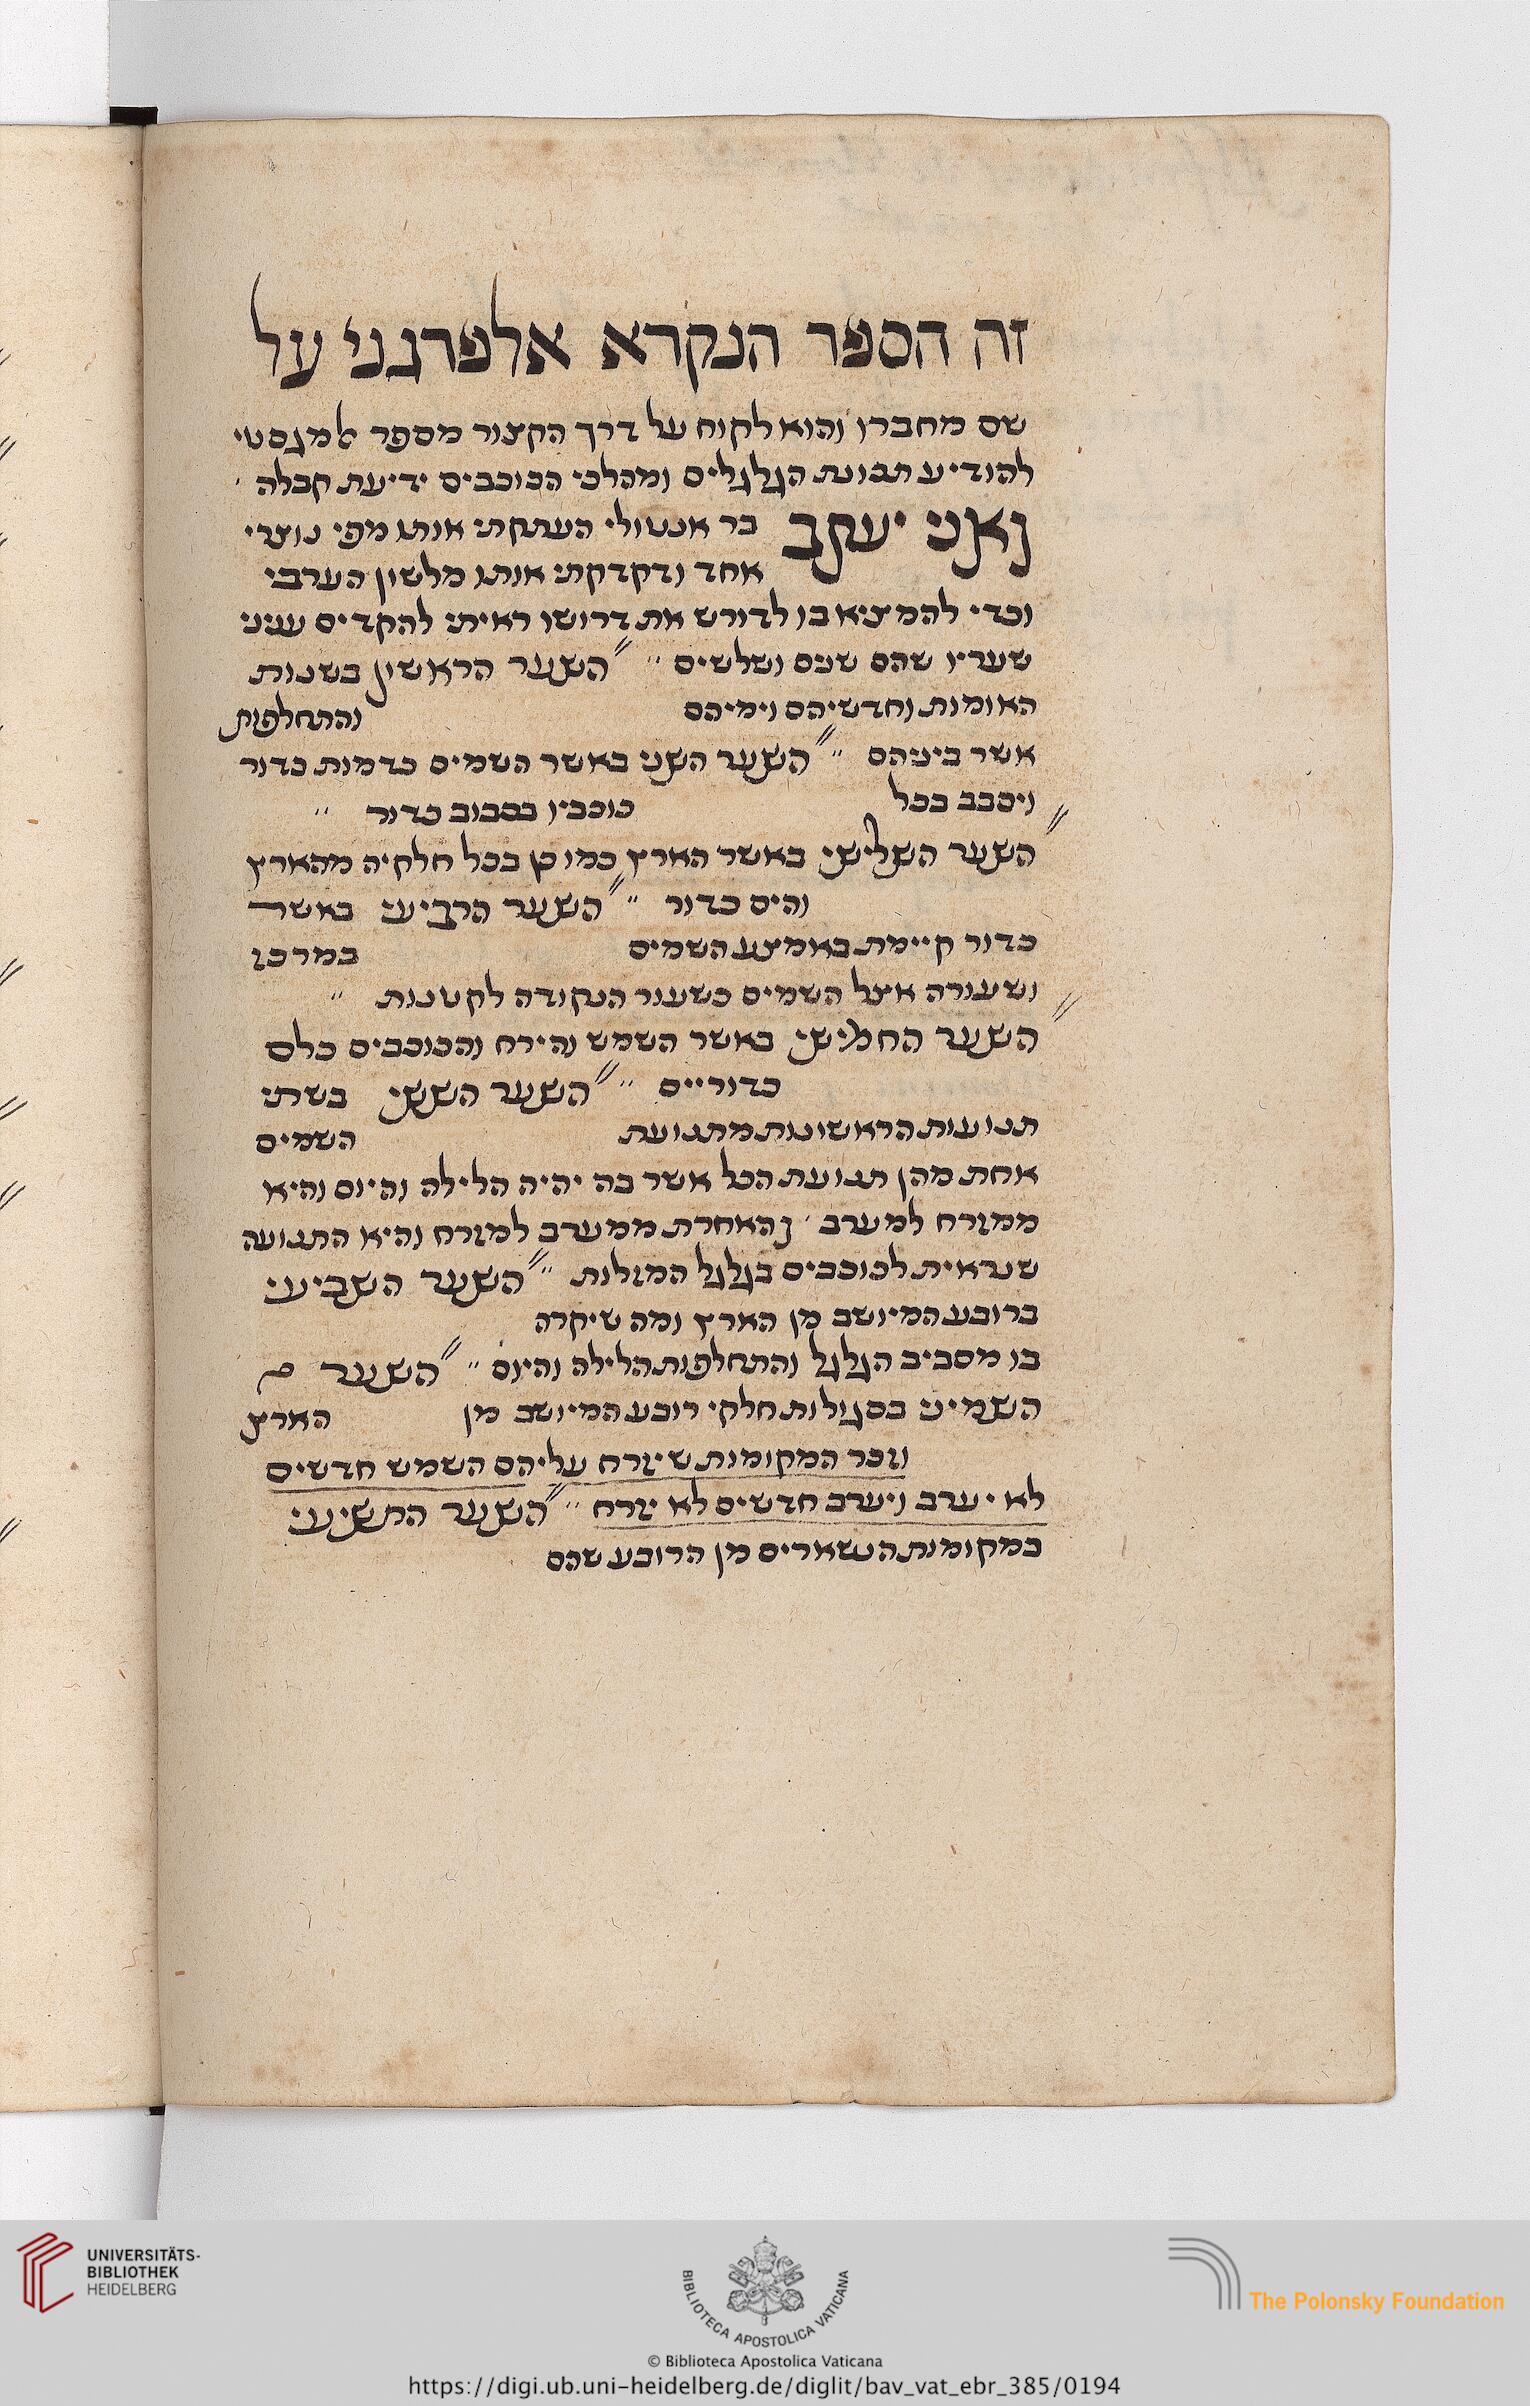 זה הספר הנקרא אלפרגני על
שם מחברו והוא לקוח על דרך הקצור מספר אלמגסטי
להודיע תבונת הגלגלים ומהלכי הכוכבים ידיעת קבלה
ואני יעקב בר אנטולי העתקתי אותו מפי נוצרי
אחד ודקדקתי אותו מלשון הערבי
וכדי להמציא בו לדורש את דרושו ראיתי להקדים עניני
שעריו שהם שנים ושלשים " השער הראשון בשנות
האומות וחדשיהם וימיהם והתחלפות
אשר ביניהם " השער השני באשר השמים כדמות כדור
ויסבב בכל כוכביו כסבוב כדור "
השער השלישי באשר הארץ כמו כן בכל חלקיה מהארץ
והים כדור " השער הרביעי באשר
כדור קיימת באמצע השמים במרכז
ושעורה אצל השמים כשעור הנקודה לקטנות "
השער החמישי באשר השמש והירח והכוכבים כלם
כדוריים " השער הששי בשתי
תנועות הראשונות מתנועת השמים
אחת מהן תנועת הכל אשר בה יהיה הלילה והיום והיא
ממזרח למערב ' והאחרת ממערב למזרח והיא התנועה
שנראית לכוכבים בגלגל המזלות " השער השביעי
ברובע המיושב מן הארץ ומה שיקרה
בו מסביב הגלגל והתחלפות הלילה והיום " השער
השמיני בסגולות חלקי רובע המיושב מן הארץ
וזכר המקומות שיזרח עליהם השמש חדשים
לא יערב ויערב חדשים לא יזרח " השער התשיעי
במקומות הנשארים מן הרובע שהם
UNIVERSITÄTS-
BIBLIOTHEK
HEIDELBERG
BIBLIOTECA APOSTOLICA VATICANA
The Polonsky Foundation
© Biblioteca Apostolica Vaticana
https://digi.ub.uni-heidelberg.de/diglit/bav_vat_ebr_385/0194